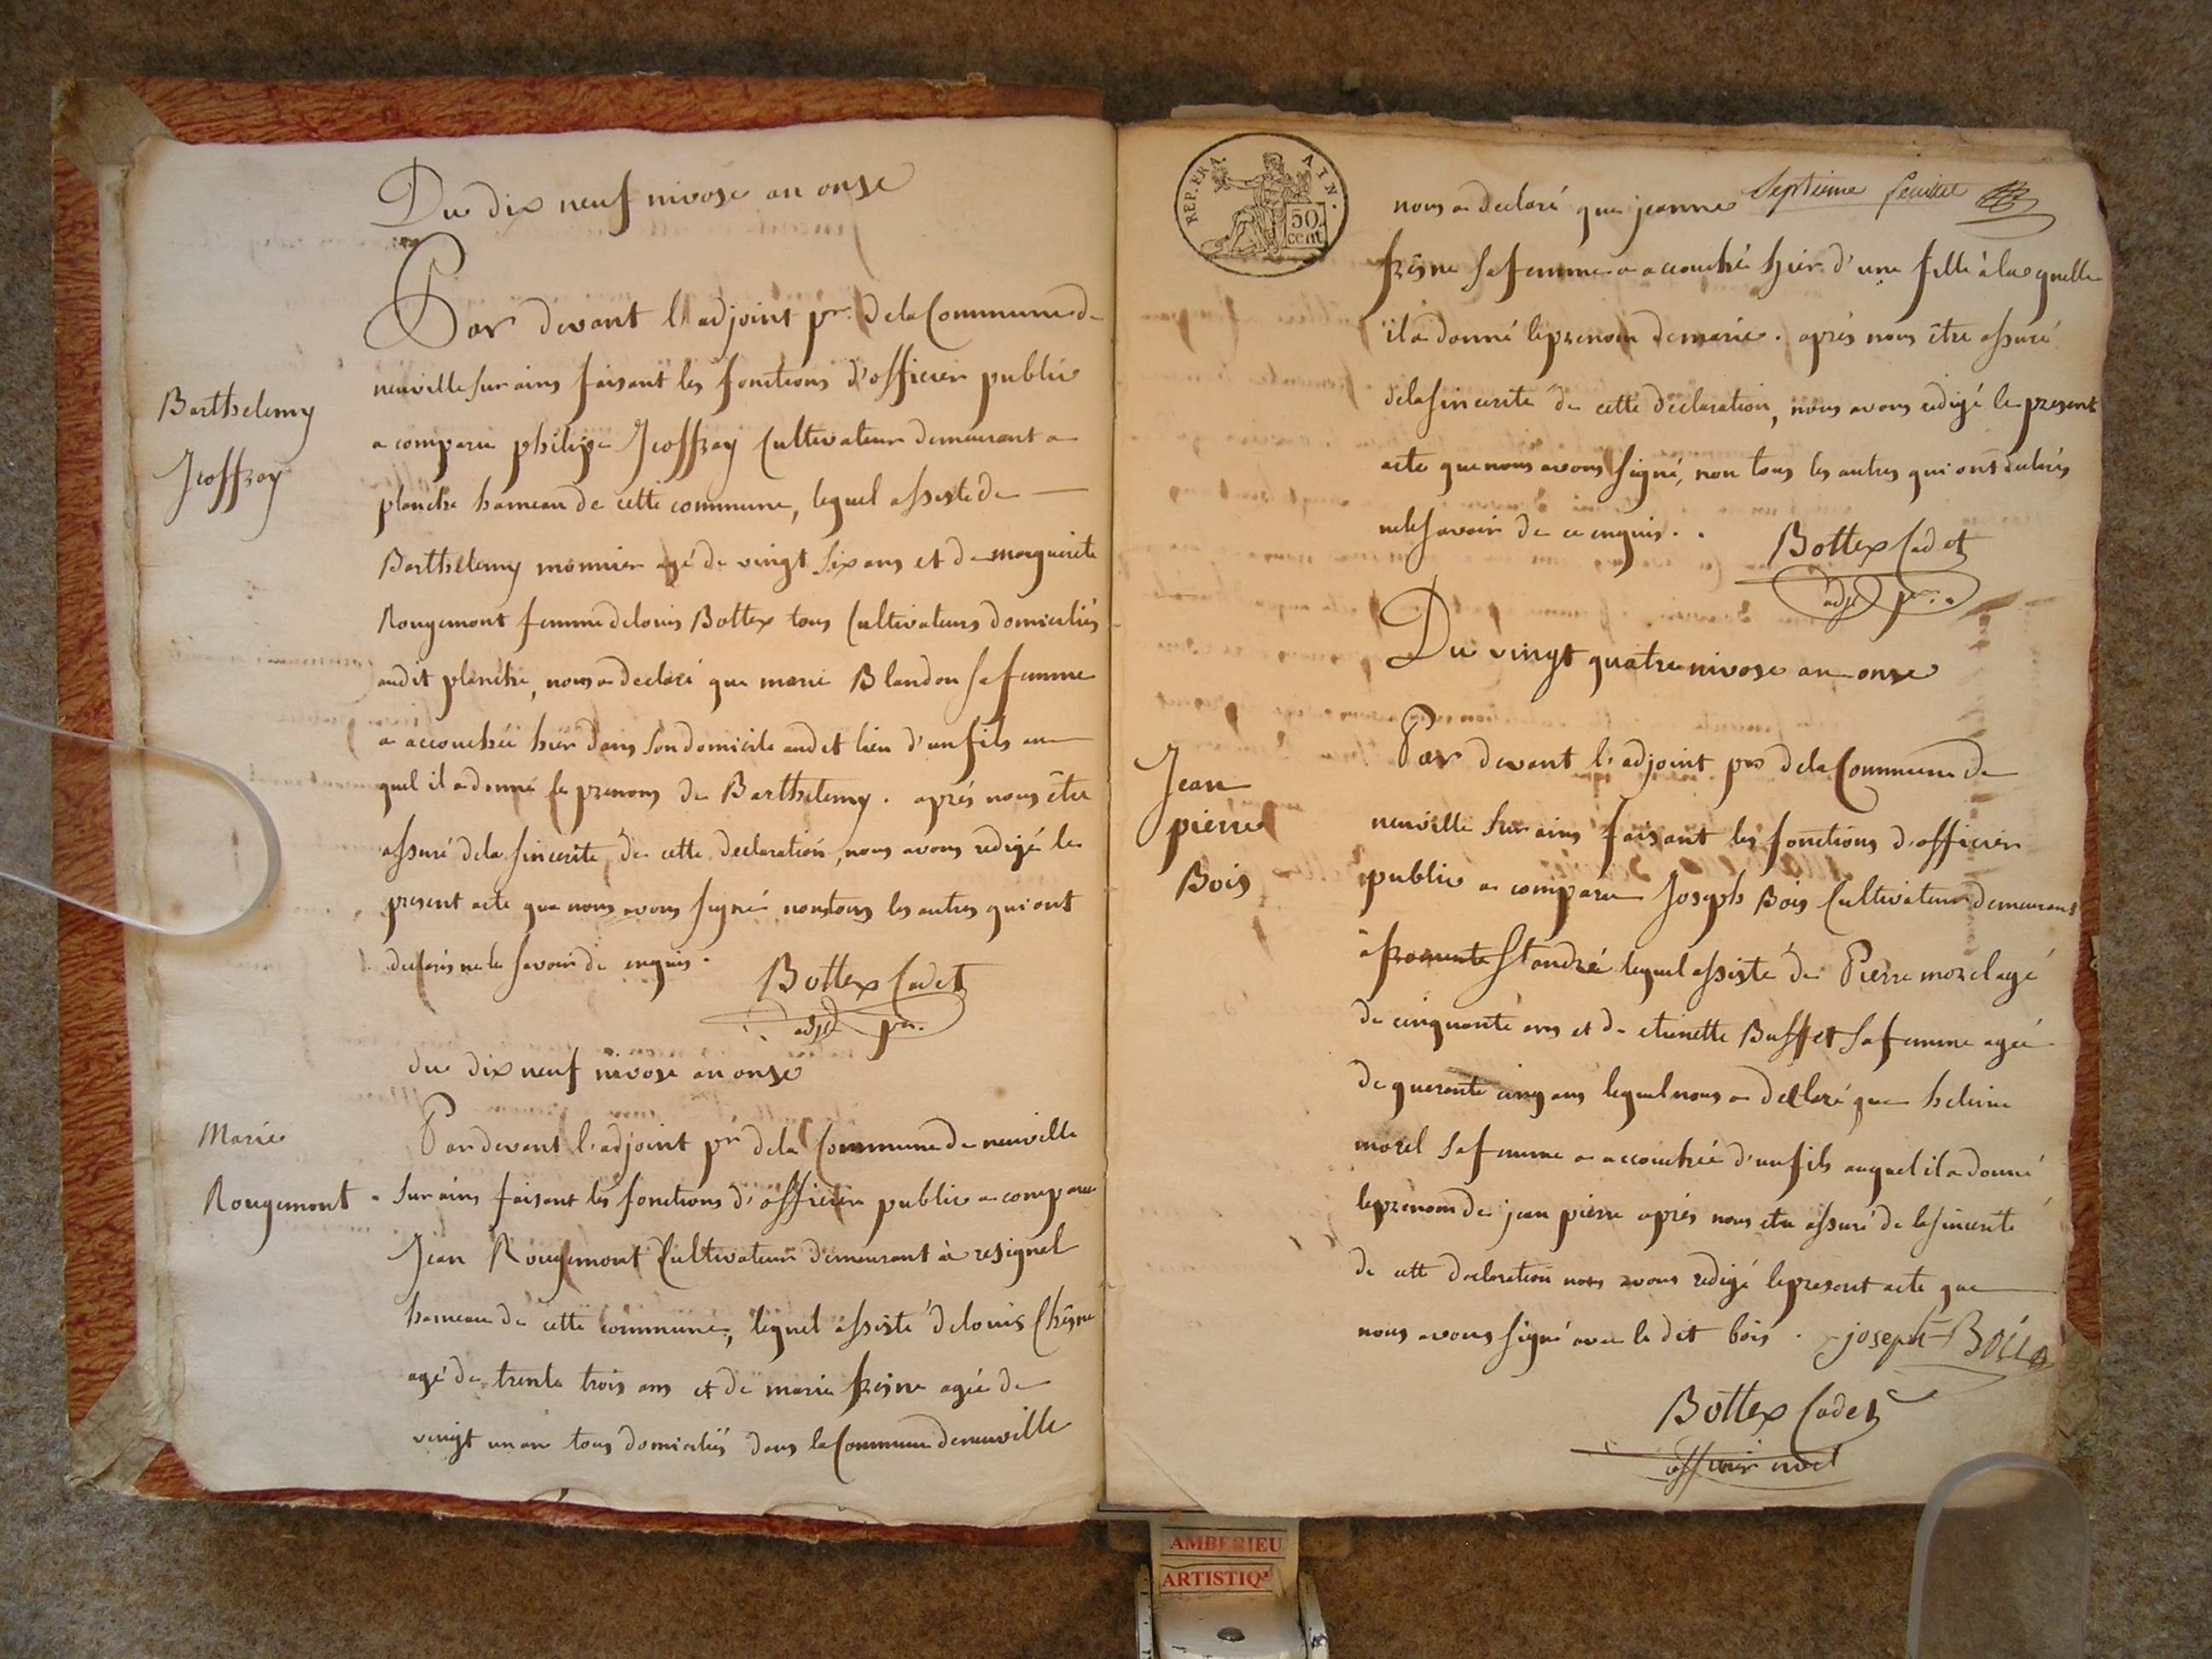 Du dix neuf nivose an onse
Par devant l'adjoint pr. de la Commune de
neuville sur ains faisant les fonctions d'officier public
Barthelemy
Jeoffray
a comparu philipe Jeoffray Cultivateur demeurant a
planche hameau de cette commune, lequel assisté de
Barthelemy monnier agé de vingt six ans et de marguerite
Rougemont femme de louis Bottex tous Cultivateurs domiciliés
audit planche, nous a declaré que marie Blandon sa femme
a accouchée hier dans son domicile audit lieu d'un fils au
quel il a donné le prenom de Barthelemy. aprés nous être
assuré de la sincerite de cette declaration, nous avons redigé le
present acte que nous avons signé non tous les autres qui ont
declarés ne le savoir de enquis.
Bottex Cadet
adjt pr.
du dix neuf nivose an onse
Marie
Rougemont
Par devant l'adjoint pr de la Commune de neuville
sur ains faisant les fonctions d'officier public a comparu
Jean Rougemont Cultivateur demeurant à resignel
hameau de cette commune, lequel assisté de louis Chêne
agé de trente trois ans et de marie fresne agée de
vingt un an tous domiciliés dans la Commune de neuville
REP. FRA. AIN.
50 cent
septieme feuillet
nous a declaré que jeanne
frêsne sa femme a accouché hier d'une fille à la quelle
il a donné le prenom de marie. aprés nous être assuré
de la sincerité de cette declaration, nous avons redigé le present
acte que nous avons signé, non tous les autres qui ont declarés
ne le savoir de ce enquis..
Bottex Cadet
adjt pr.
Du vingt quatre nivose an onse
Par devant l'adjoint pr de la Commune de
Jean
pierre
Bois
neuville sur ains faisant les fonctions d'officier
public a comparu Joseph Bois Cultivateur demeurant
à fromente St andré lequel assisté de Pierre morel agé
de cinquante ans et de etienette Buffet sa femme agée
de querante cinq ans lequel nous a declaré que helene
morel sa femme a accouchée d'un fils auquel il a donné
le prenom de jean pierre aprés nous etre assuré de la sincerité
de cette declaration nous avons redigé le present acte que
nous avons signé avec le dit bois. joseph Bois
Bottex Cadet
officier
AMBERIEU
ARTISTIQ